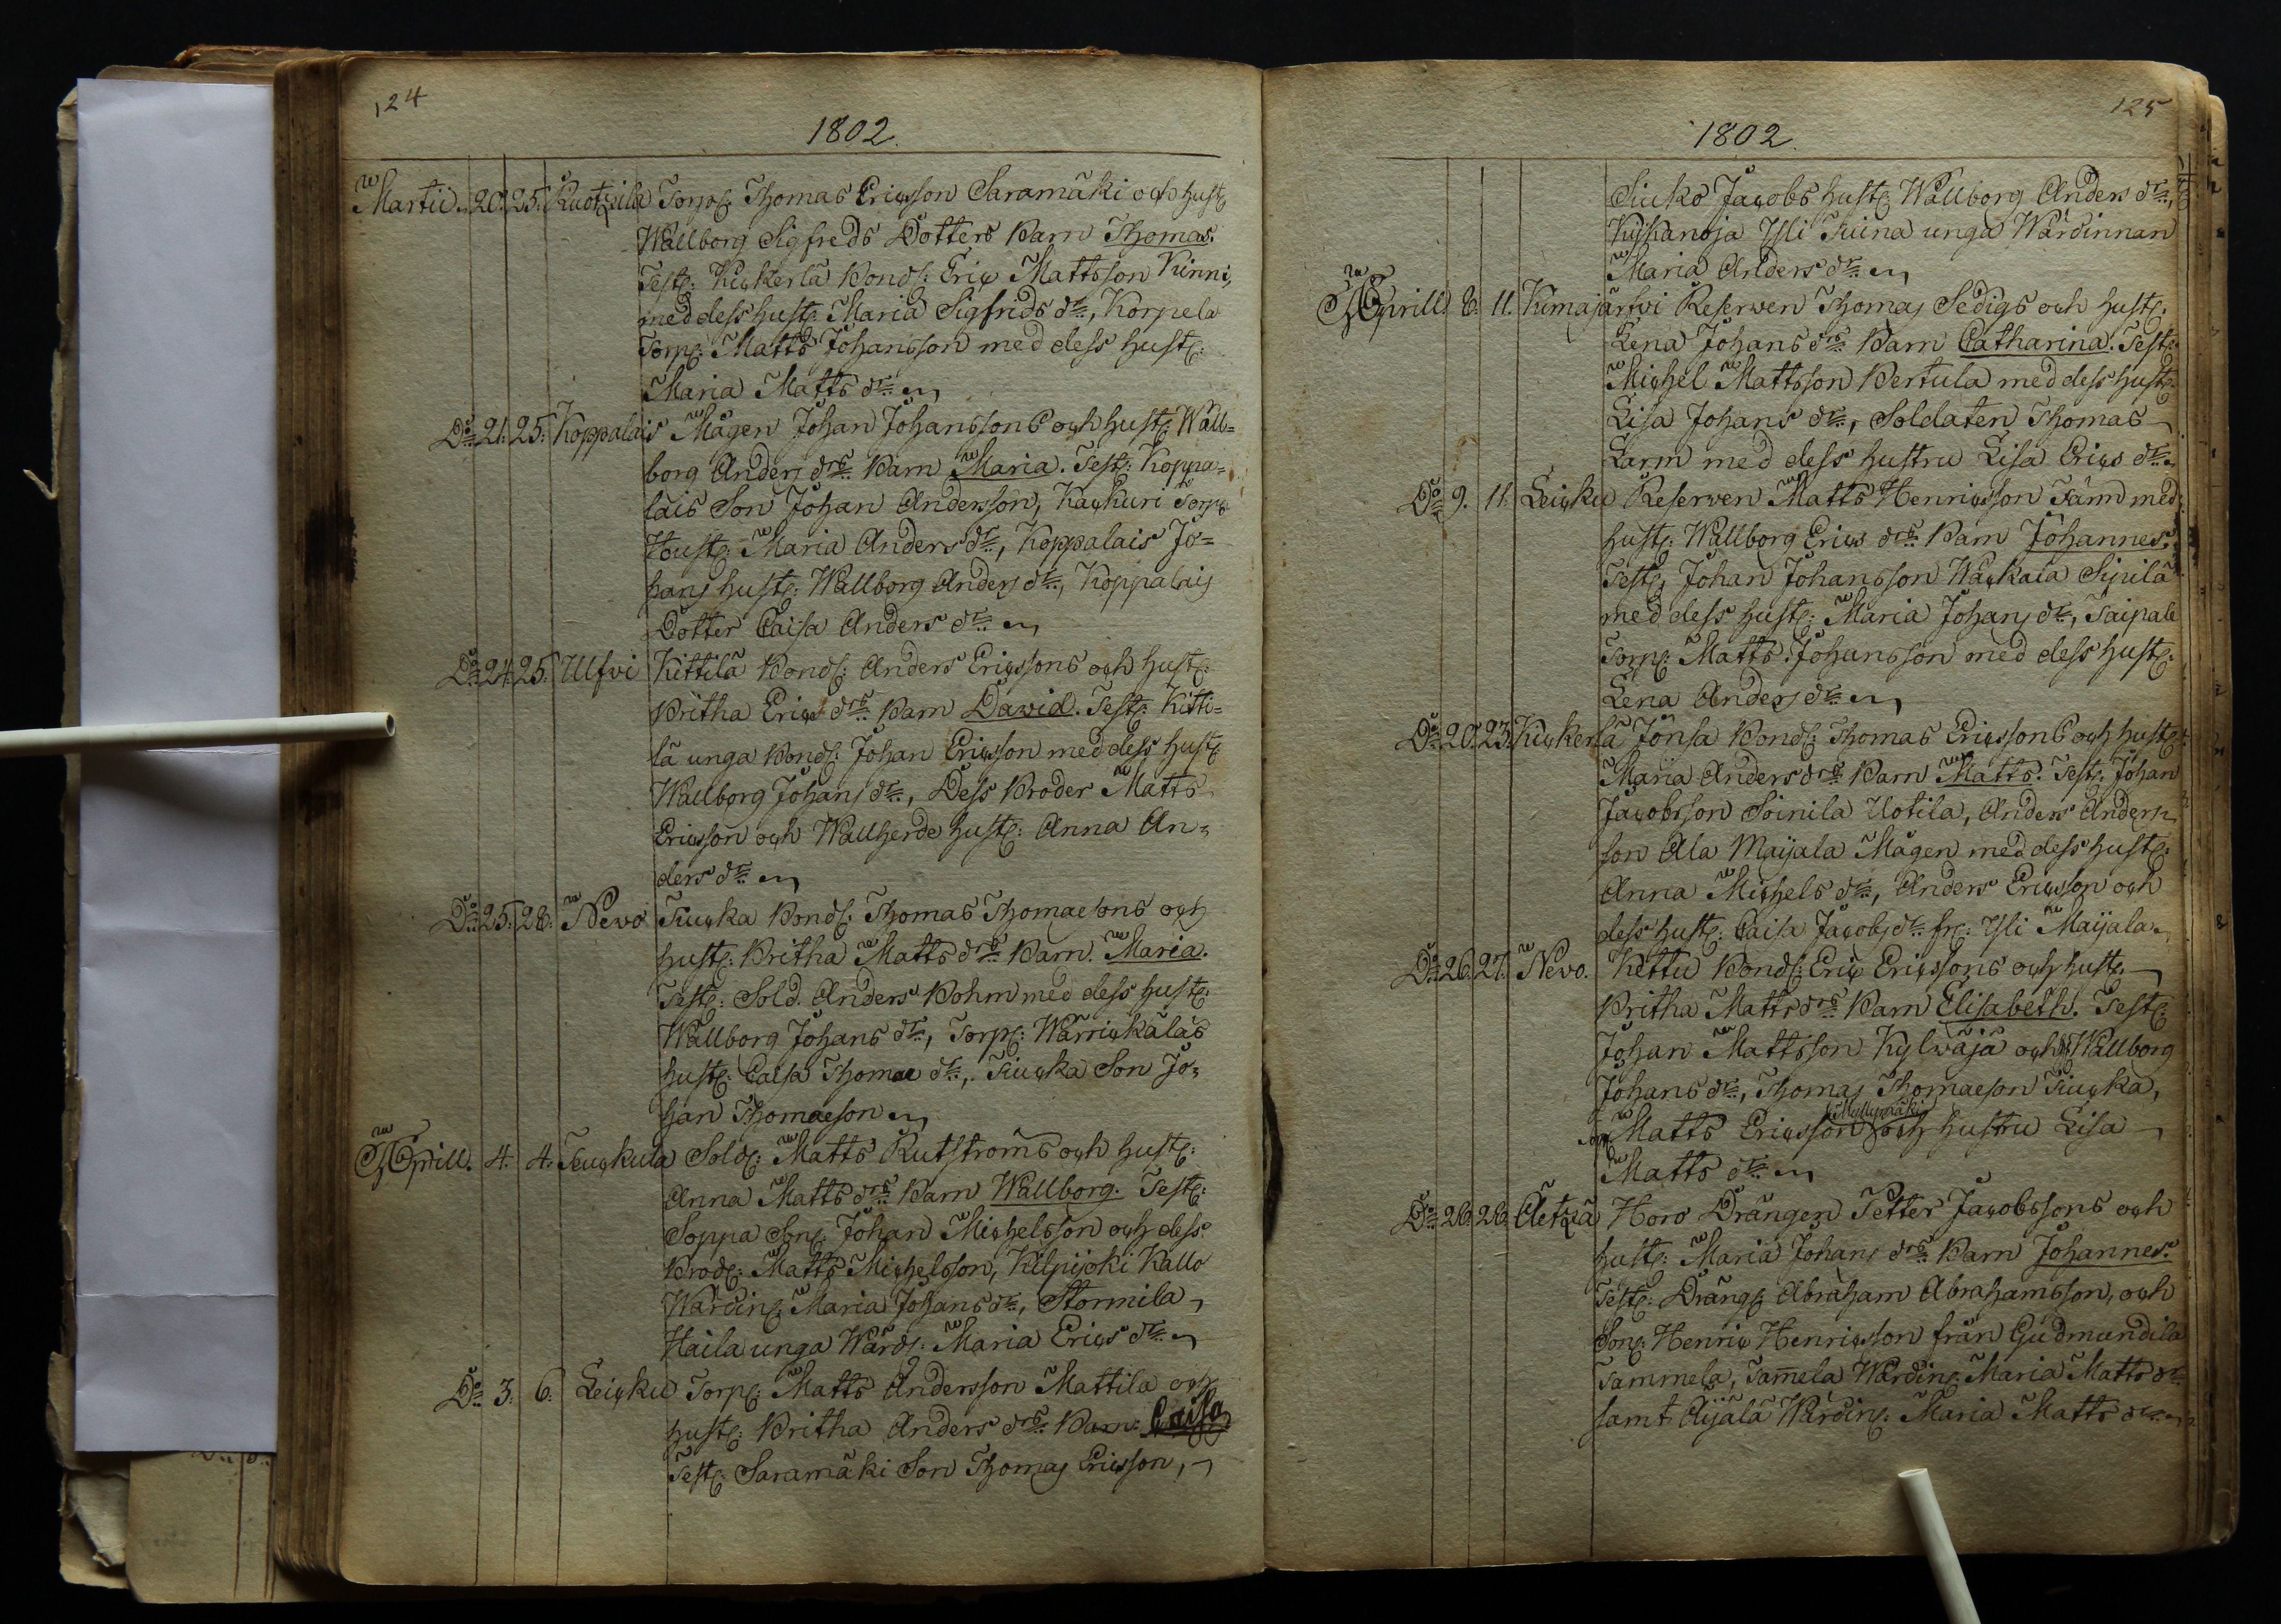 124
1802.
Martii. 20. 25. Ruotzila Torp: Thomas Ericsson Saramäki och hust:
Wallborg Sigfreds Dotters Barn Thomas.
Test: Kickerlä Bond: Eric Mattsson Kinni,
med dess hust: Maria Sigfrids dr., Korpela
Torp: Matts Johansson med dess hust:
Maria Matts dr.
Do 21. 25. Koppalais Mågen Johan Johanssons och hust: Wall=
borg Anders drs. Barn Maria. Test: Koppa=
lais Son Johan Andersson, Kackuri Torp:
Houst: Maria Anders dr., Koppalais Jo=
hans hust: Wallborg Anders dr., Koppalais
Dotter Caisa Anders dr.
Do 24. 25. Ulfvi Kittilä Bond: Anders Ericssons och hust:
Britha Erics drs. Barn David. Test: Kitti=
lä unga Bond: Johan Ericsson med dess hust:
Wallborg Johans dr., Dess Broder Matts
Ericsson och Wallherde hust: Anna An=
ders dr.
Do 25. 28. Nevo Tiucka Bond: Thomas Thomaesons och
hust: Britha Matts drs. Barn. Maria.
Test: Sold. Anders Bohm med dess hust:
Wallborg Johans dr., Torp: Warrickäläs
hust: Caisa Thomae dr., Tiucka Son Jo=
han Thomaeson
Aprill. 4. 4. Teuckula Sold: Matts Rutströms och hust:
Anna Matts drs. Barn Wallborg. Test:
Soppa Son: Johan Michelsson och dess
Brod: Matts Michelsson, Kilpijoki Kallo
Wärdin: Maria Johans dr., Stormila
Haila unga Wärd: Maria Erics dr.
Do 3. 6. Leicku Torp: Matts Andersson Mattila och
hust: Britha Anders drs. Barn: Caisa
Test: Saramäki Son Thomas Ericsson,
125
1802.
Siuko Jacobs hust: Wallborg Anders dr.,
Kyskanoja Yli Tuina unga Wärdinnan
Maria Anders dr.
Aprill. 8. 11. Kimajärfvi Reserven Thomas Sedigs och hust:
Lena Johans drs. Barn Catharina. Test:
Michel Mattsson Pertula med dess hust:
Lisa Johans dr., Soldaten Thomas
Larm med dess hustru Lisa Erics dr.
Do 9. 11. Leicku Reserven Matts Henricsson Färm med
hust: Wallborg Erics drs. Barn Johannes.
Test: Johan Johansson Wäckaia Sipilä
med dess hust: Maria Johans dr., Taipale
Torp: Matts Johansson med dess hust:
Lena Anders dr.
Do 20. 23. Kickerlä Jönsa Bond: Thomas Ericssons och hust:
Maria Anders drs. Barn Matts. Test: Johan
Jacobsson Soinila Uotila, Anders Anders
son Ala Maijala Mågen med dess hust:
Anna Michels dr., Anders Ericsson och
dess hust: Caisa Jacobs dr. fr: Yli Maijala
Do 26. 27. Nevo. Kettu Bond: Eric Ericssons och hust:
Britha Matts drs. Barn Elisabeth. Test:
Johan Mattsson Kylwäjä och Wallborg
Johans dr., Thomas Thomaeson Tiucka,
Myllymäki
Matts Ericsson och hustru Lisa
Matts dr.
Do 26. 28. Äetzä Horo Drängen Petter Jacobssons och
hust: Maria Johans drs. Barn Johannes.
Test: Dräng: Abraham Abrahamsson, och
Son: Henric Henricsson från Gudmundila
Tammela, Tamela Wärdin: Maria Matts dr.
samt Äijälä Wärdin: Maria Matts dr.